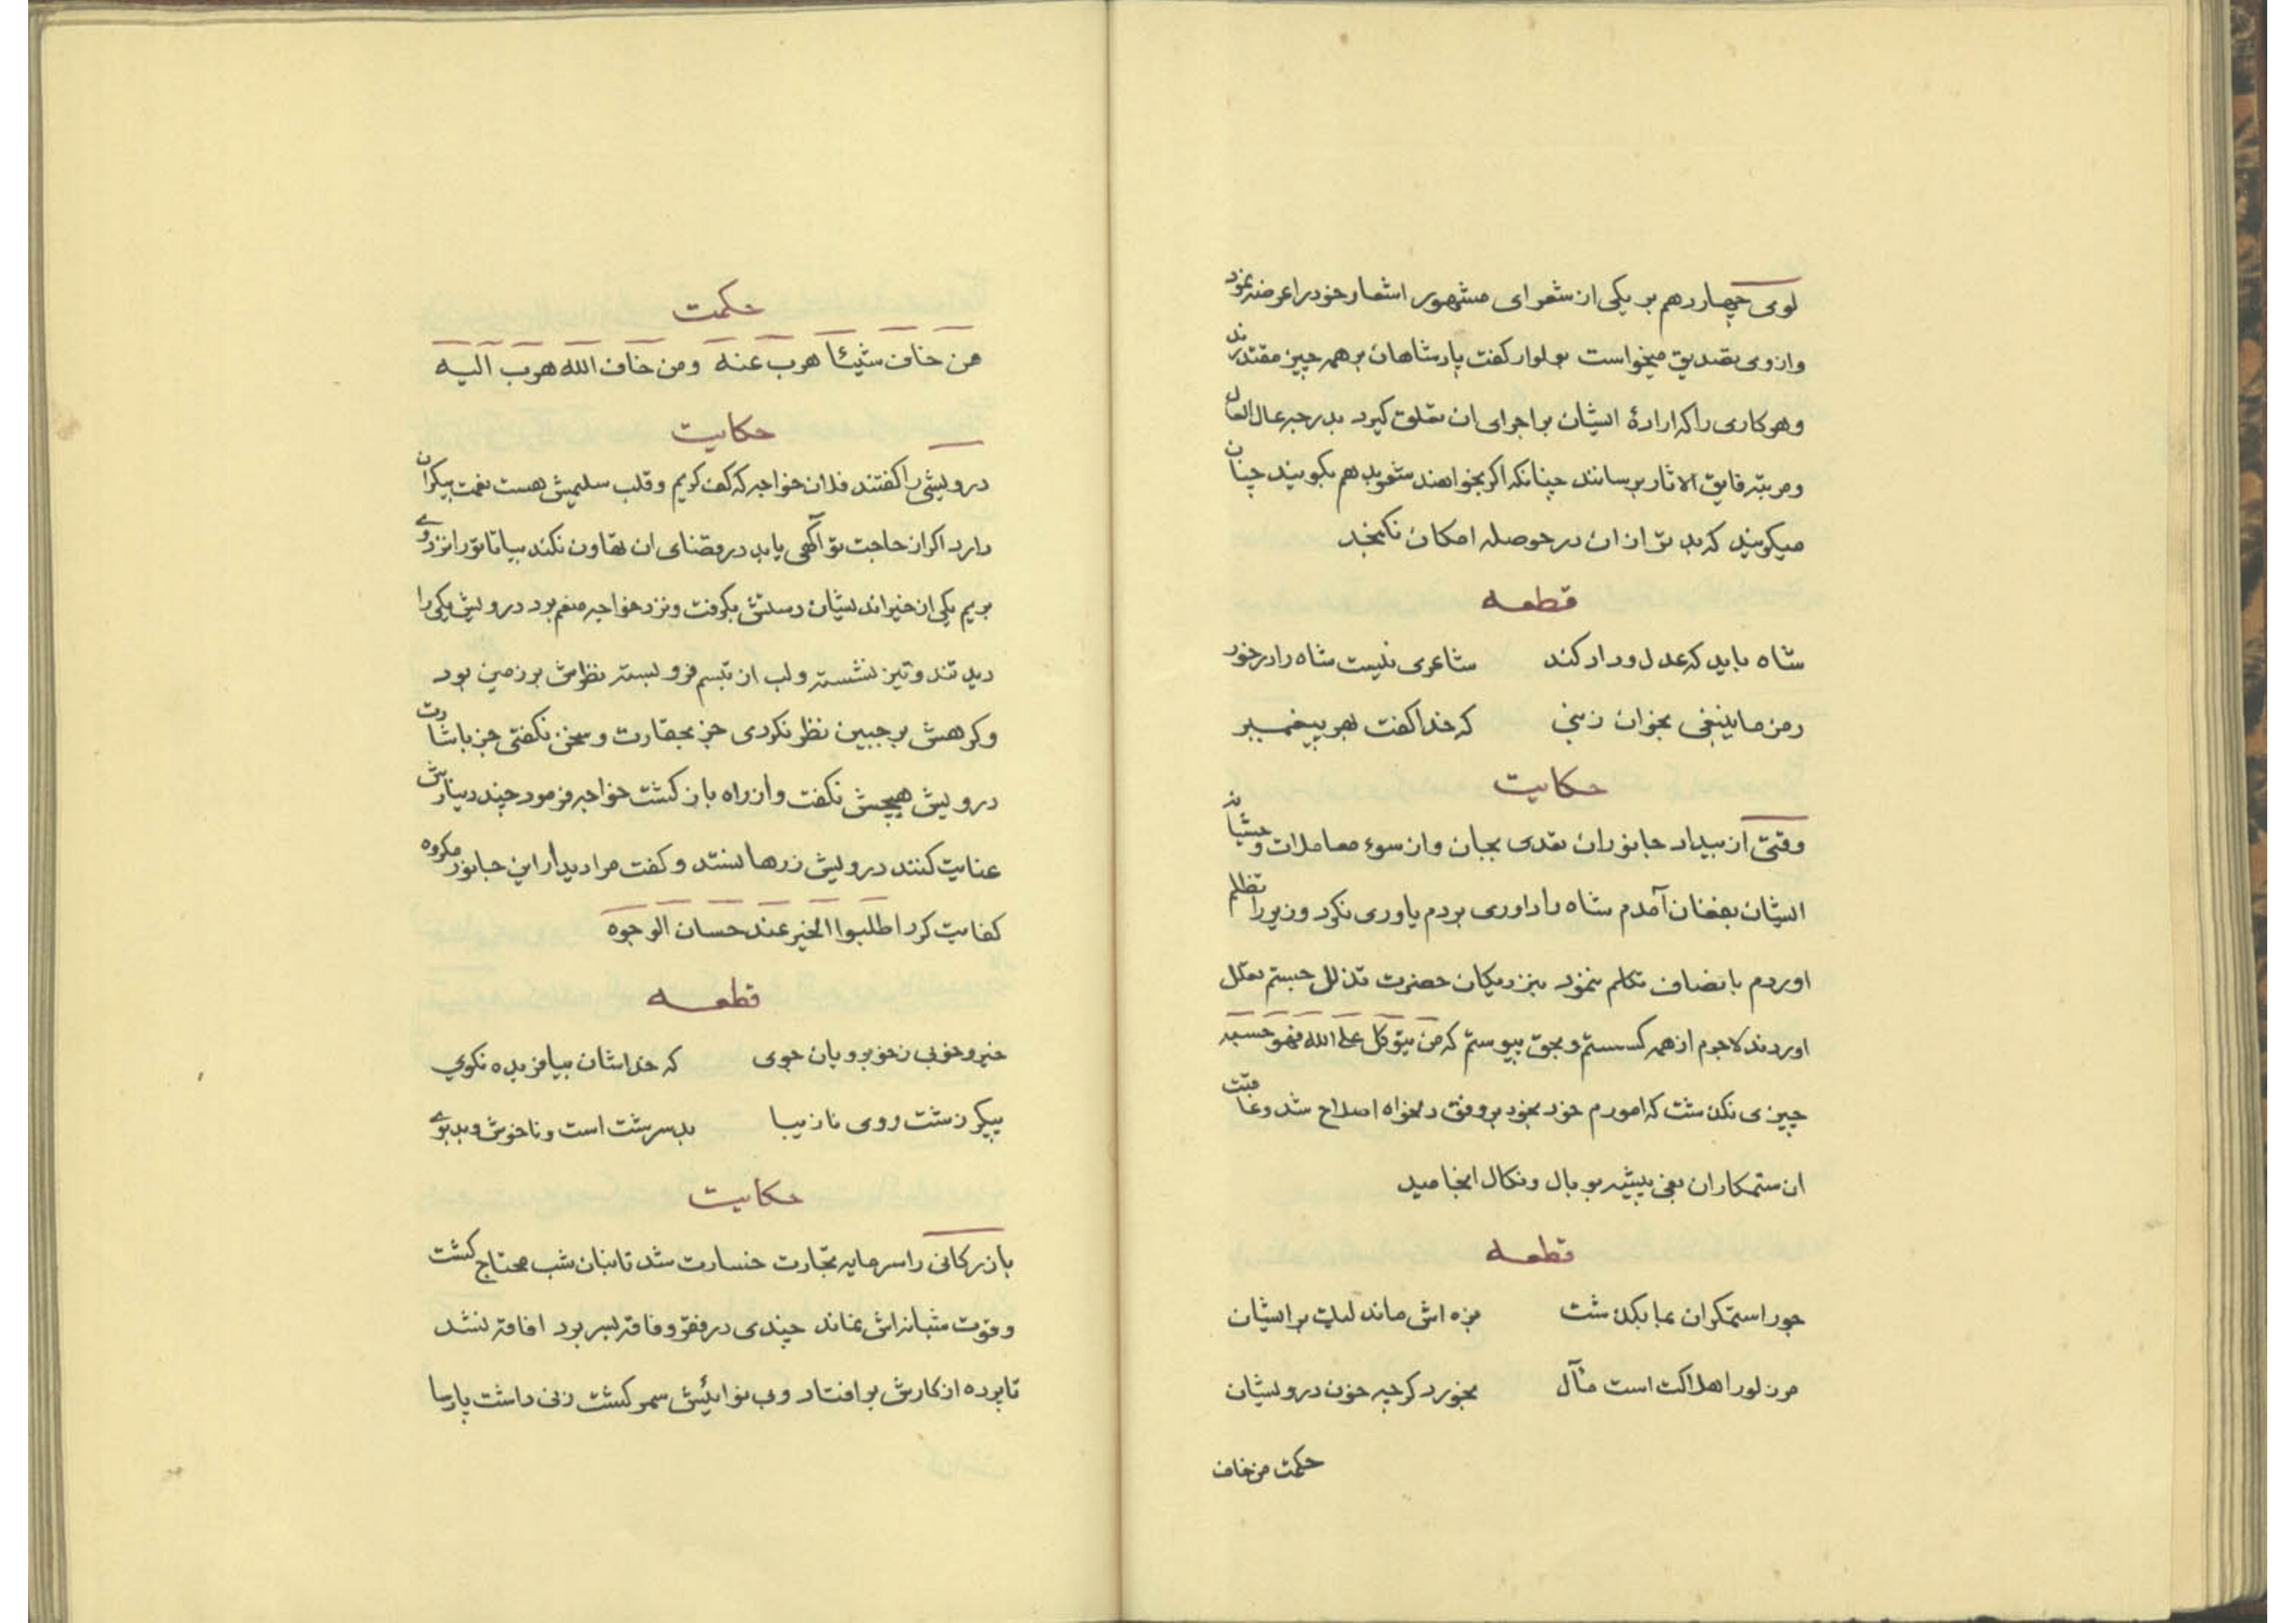 لوی چهاردهم بر یکی از شعرای مشهور اشعار خود را عرضه نمود
وازوی تصدیق میخواست بوالو کفت پادشاهان بر همه چیز مقتدرند
وهر کاری را که ارادهٔ ایشان بر اجرای ان تعلق کیرد بدرجه عال العال
ومرتبه فایق الاثار برسانند چنانکه اکر بخواهند شعر بد هم بکویند چنان
میکویند که بدتر از ان در حوصله امکان نکنجد
قطعه
شاه باید که عدل و داد کند شاعری نیست شاه را در خور
رمز ما ینبغی بخوان زنبی که خدا کفت بهر پیغمبر
حکایت
وقتی از بیداد جانوران تعدی بجان واز سوء معاملات وحشیانه
ایشان بفغان آمدم شاه را داوری بردم یاوری نکرد وزیر را تظلم
اوردم بانصاف تکلم ننمود بنزدیکان حضرت تذلل جستم تعلل
اوردند لاجرم از همه کسستم و بحق پیوستم که من یتوکل علی الله فهو حسبه
چیزی نکذشت که امورم خود بخود بر وفق دلخواه اصلاح شد وعاقبت
ان ستمکاران بغی پیشه بوبال ونکال انجامید
قطعه
جور استمکران بما بکذشت بزه اش ماند لیک بر ایشان
مر زلو را هلاکت است مآل بخورد کرچه خون درویشان
حکمت من خاف
حکمت
من خاف شیئاً هرب عنه ومن خاف الله هرب الیه
حکایت
درویشی را کفتند فلان خواجه که کف کریم وقلب سلیمش هست نعمت بیکران
دارد اکر از حاجت تو آکهی یابد در قضای ان تهاون نکند بیا تا تو را نزد وی
بریم یکی از خیراندیشان دستش بکرفت ونزد خواجه منعم برد درویش یکی را
دید تند وتیز نشسته ولب از تبسم فرو بسته نظرش بر زمین بود
وکرهش بر جبین نظر نکردی جز بحقارت وسخن نکفتی جز باشارت
درویش هیچش نکفت واز راه باز کشت خواجه فرمود چند دینارش
عنایت کنند درویش زرها نستد وکفت مرا دیدار این جانور مکروه
کفایت کرد اطلبوا الخیر عند حسان الوجوه
قطعه
خیر وخوبی زخوبرویان جوی که خداشان بیافریده نکوی
پیکر زشت روی نازیبا بد سرشت است وناخوش وبدبوی
حکایت
بازرکانی را سرمایه تجارت خسارت شد تا بنان شب محتاج کشت
وقوت شبانه اش نماند چندی در فقر وفاقه بسر برد افاقه نشد
تا پرده از کارش بر افتاد وبی نوائیش سمر کشت زنی داشت پارسا